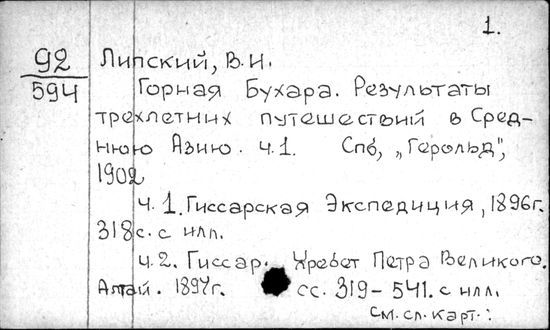 1.
92
594
Липский, В.И.
Горная Бухара. Результаты
трехлетних путешествий в Сред-
нюю Азию. ч.1. Спб, „Герольд",
1902
ч. 1. Гиссарская Экспедиция, 1896г.
318 с. с илл.
ч. 2. Гиссар. Хребет Петра Великого.
Алтай. 1897г. сс. 319-541. с илл.
См. сл. карт.: